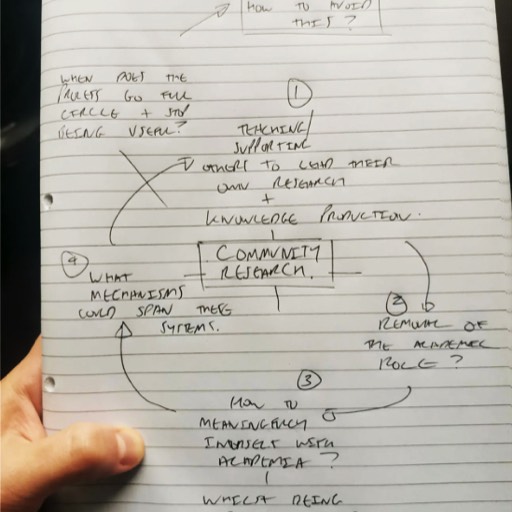 HOW TO AVOID
THIS?
WHEN DOES THE
PROCESS GO FULL
CIRCLE + STOP
BEING USEFUL?
1
TEACHING/
SUPPORTING
OTHERS TO LEAD THEIR
OWN RESEARCH
+
KNOWLEDGE PRODUCTION.
COMMUNITY
RESEARCH.
4
WHAT
MECHANISMS
COULD SPAN THESE
SYSTEMS.
2
REMOVAL OF
THE ACADEMIC
ROLE?
3
HOW TO
MEANINGFULLY
INTERSECT WITH
ACADEMIA?
WHILST BEING